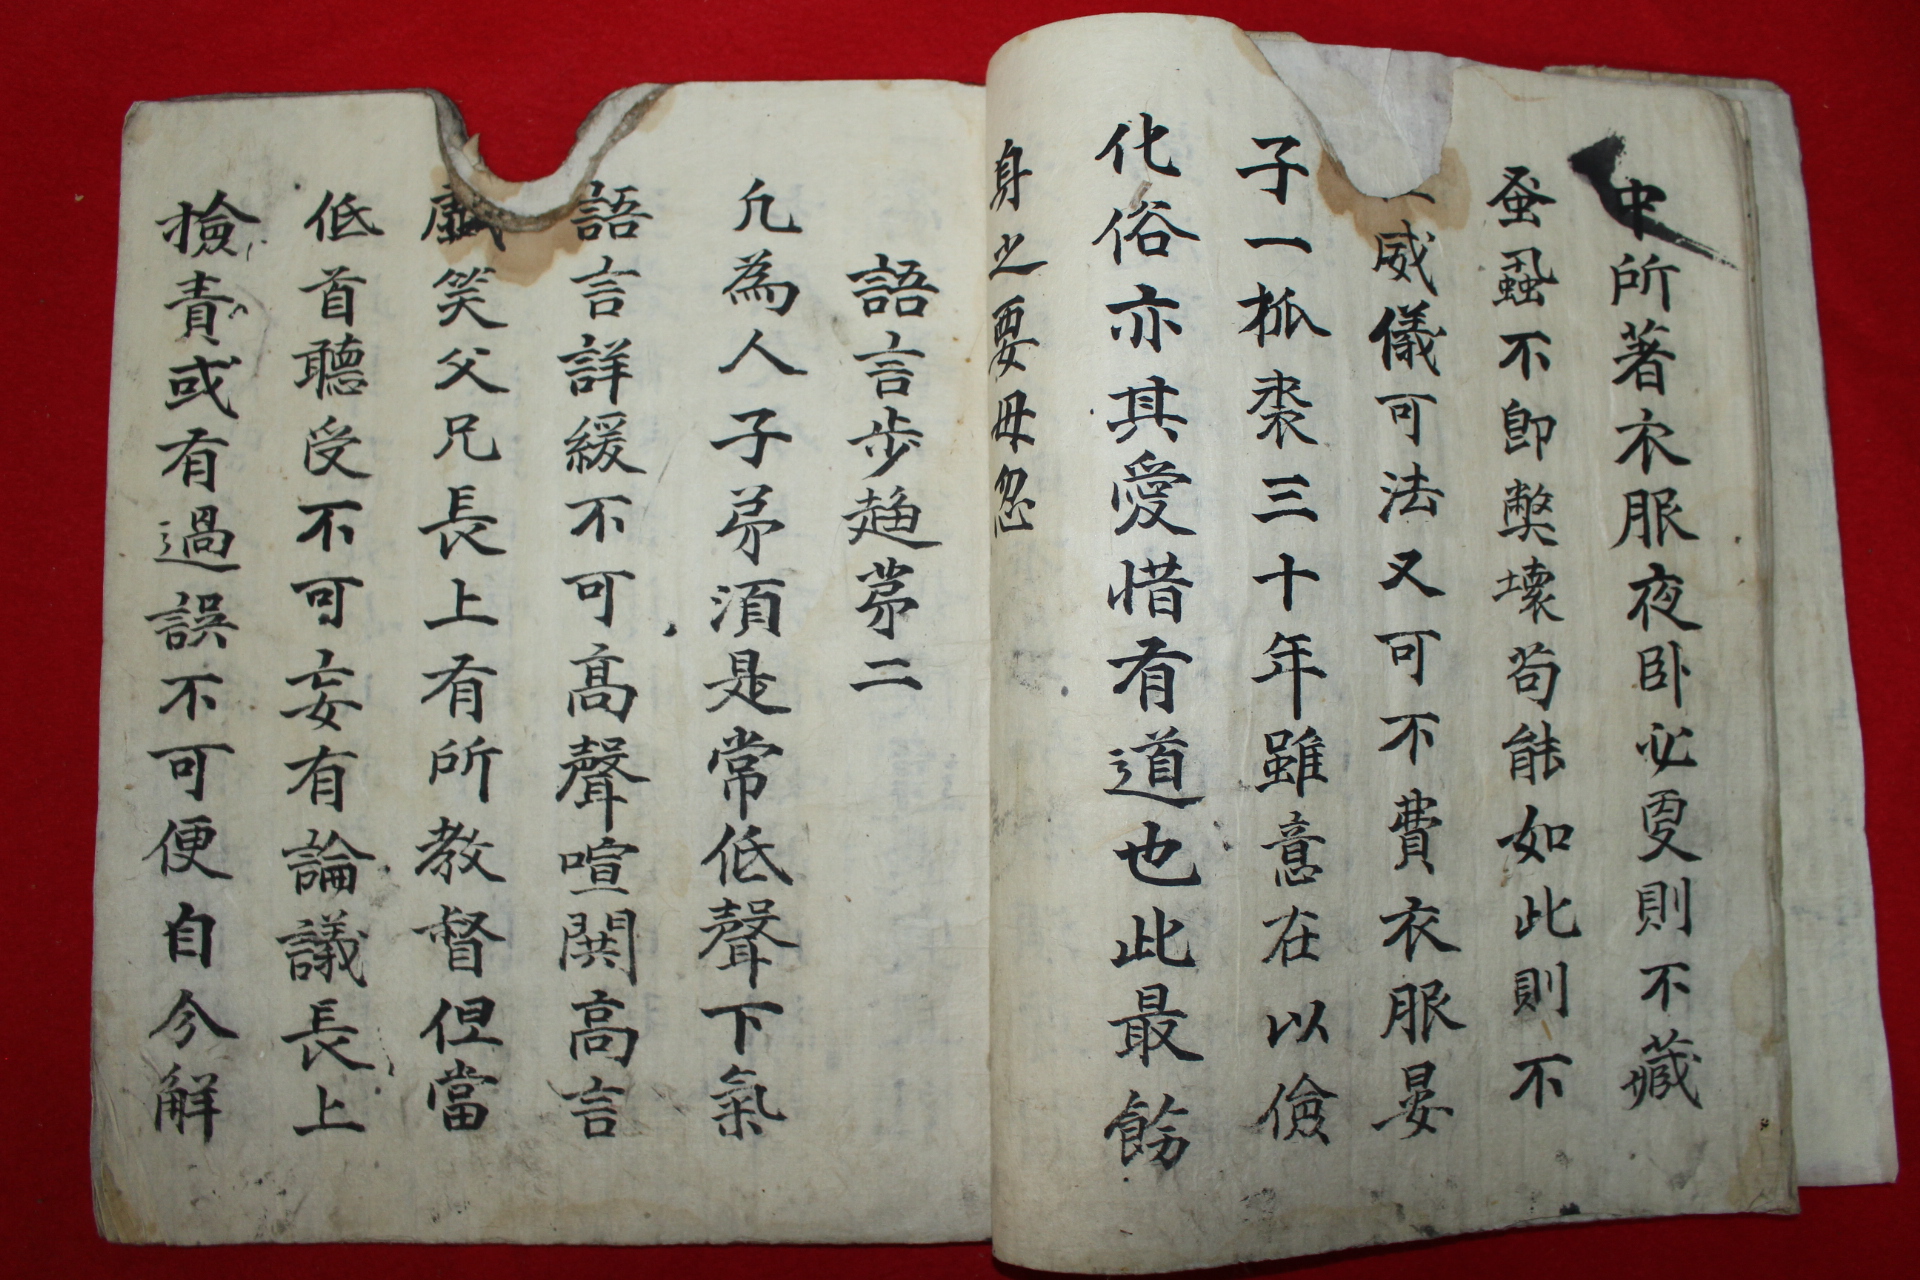 中所著衣服夜卧必更則不藏
蚤蝨不卽獘壞茍能如此則不
威儀可法又可不費衣服晏
子一狐裘三十年雖意在以儉
化俗亦其愛惜有道也此最飭
身之要毋忽
語言步趍苐二
凡為人子苐湏是常低聲下氣
語言詳緩不可高聲喧閧高言
戱笑父兄長上有所教督但當
低首聽受不可妄有論議長上
撿責或有過誤不可便自分解